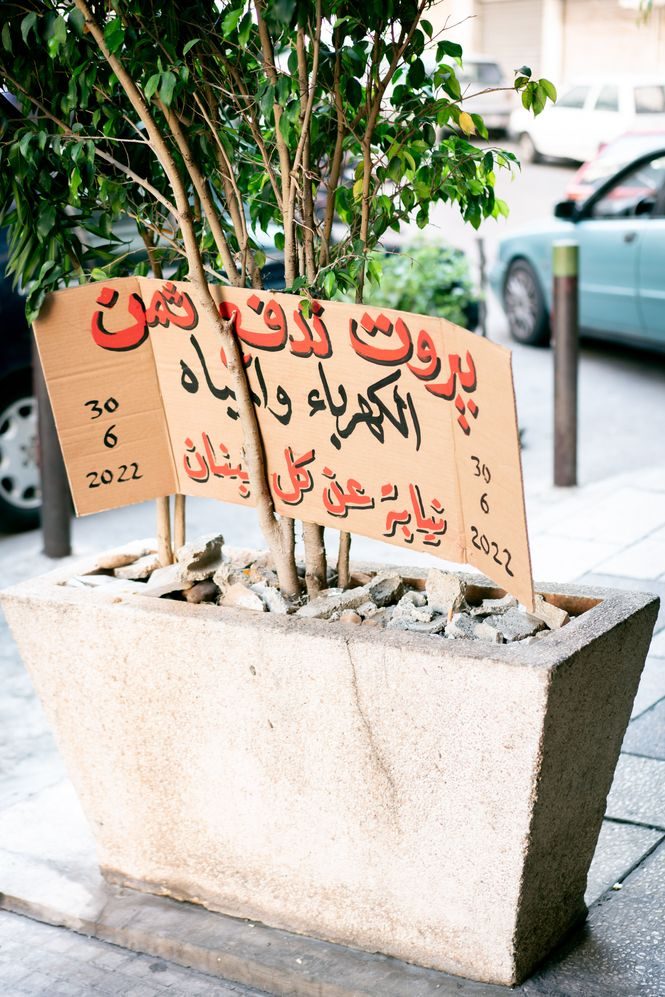 بيروت تدفع ثمن
الكهرباء والمياه
نيابة عن كل لبنان
30
6
2022
30
6
2022